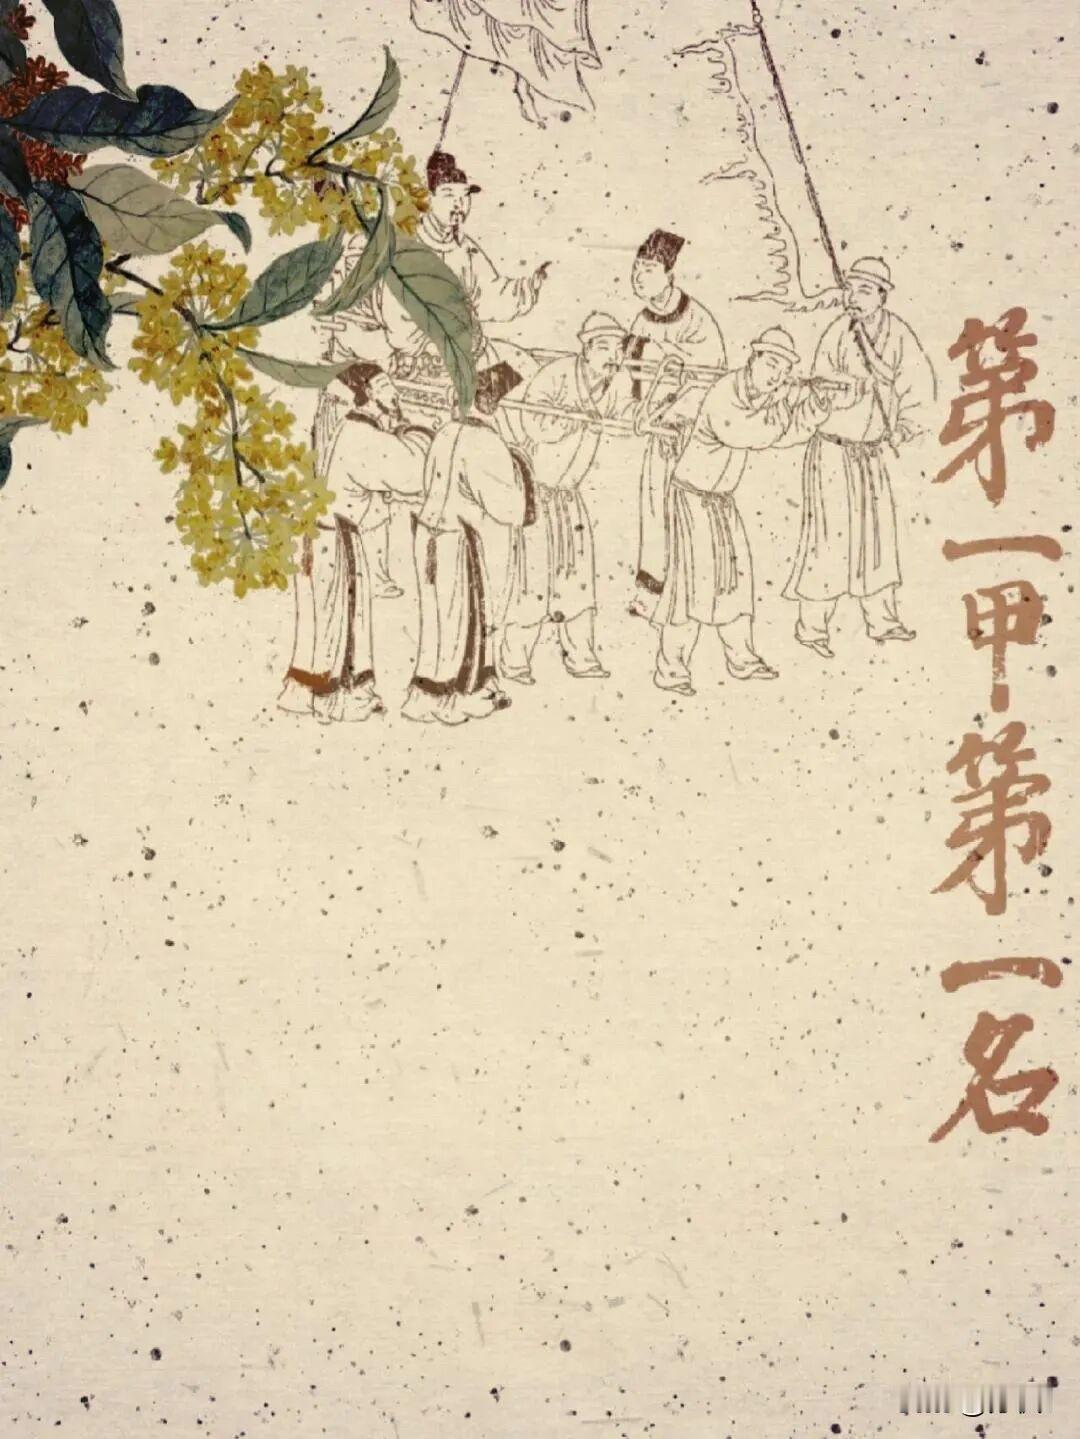 第一甲第一名